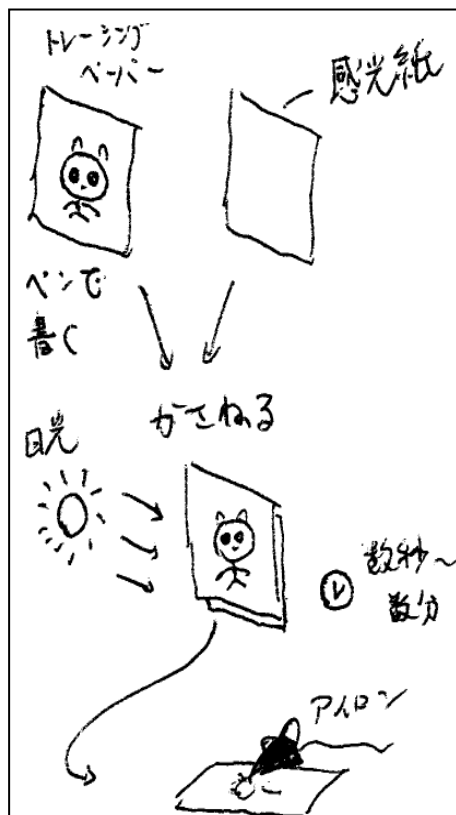 トレーシング
ペーパー
感光紙
ペンで
書く
かさねる
日光
数秒〜
数分
アイロン